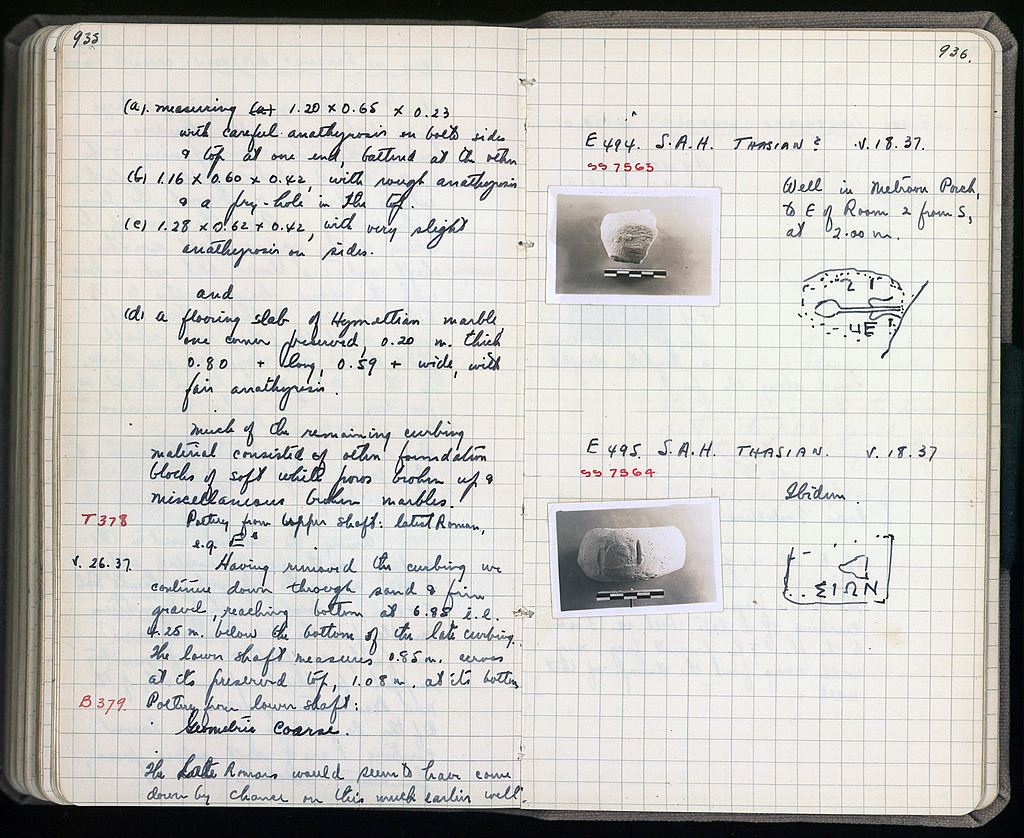 935
(a). measuring (a) 1.20 x 0.65 x 0.23
with careful anathyrosis on both sides
& top at one end, battered at the other
(b) 1.16 x 0.60 x 0.42, with rough anathyrosis
& a pry-hole in the top.
(c) 1.28 x 0.62 x 0.42, with very slight
anathyrosis on sides.
and
(d) a flooring slab of Hymettian marble,
one corner preserved, 0.20 m. thick
0.80 + long, 0.59 + wide, with
fair anathyrosis.
Much of the remaining curbing
material consisted of other foundation
blocks of soft white poros broken up &
miscellaneous broken marbles.
T 378
Pottery from upper shaft: latest Roman,
e.g. E
v. 26.37.
Having removed the curbing we
continue down through sand & firm
gravel, reaching bottom at 6.85 i.e.
4.25 m. below the bottom of the late curbing.
The lower shaft measures 0.85 m. across
at its preserved top, 1.08 m. at its bottom
B 379.
Pottery from lower shaft:
Geometric coarse.
The Late Romans would seem to have come
down by chance on this much earlier well.
936.
E 494. S.A.H. THASIAN? V.18.37.
SS 7563
Well in Metroon Porch,
to E of Room 2 from S,
at 2.00 m.
E 495. S.A.H. THASIAN. V.18.37
SS 7564
Ibidem.
ΣΙΩΝ